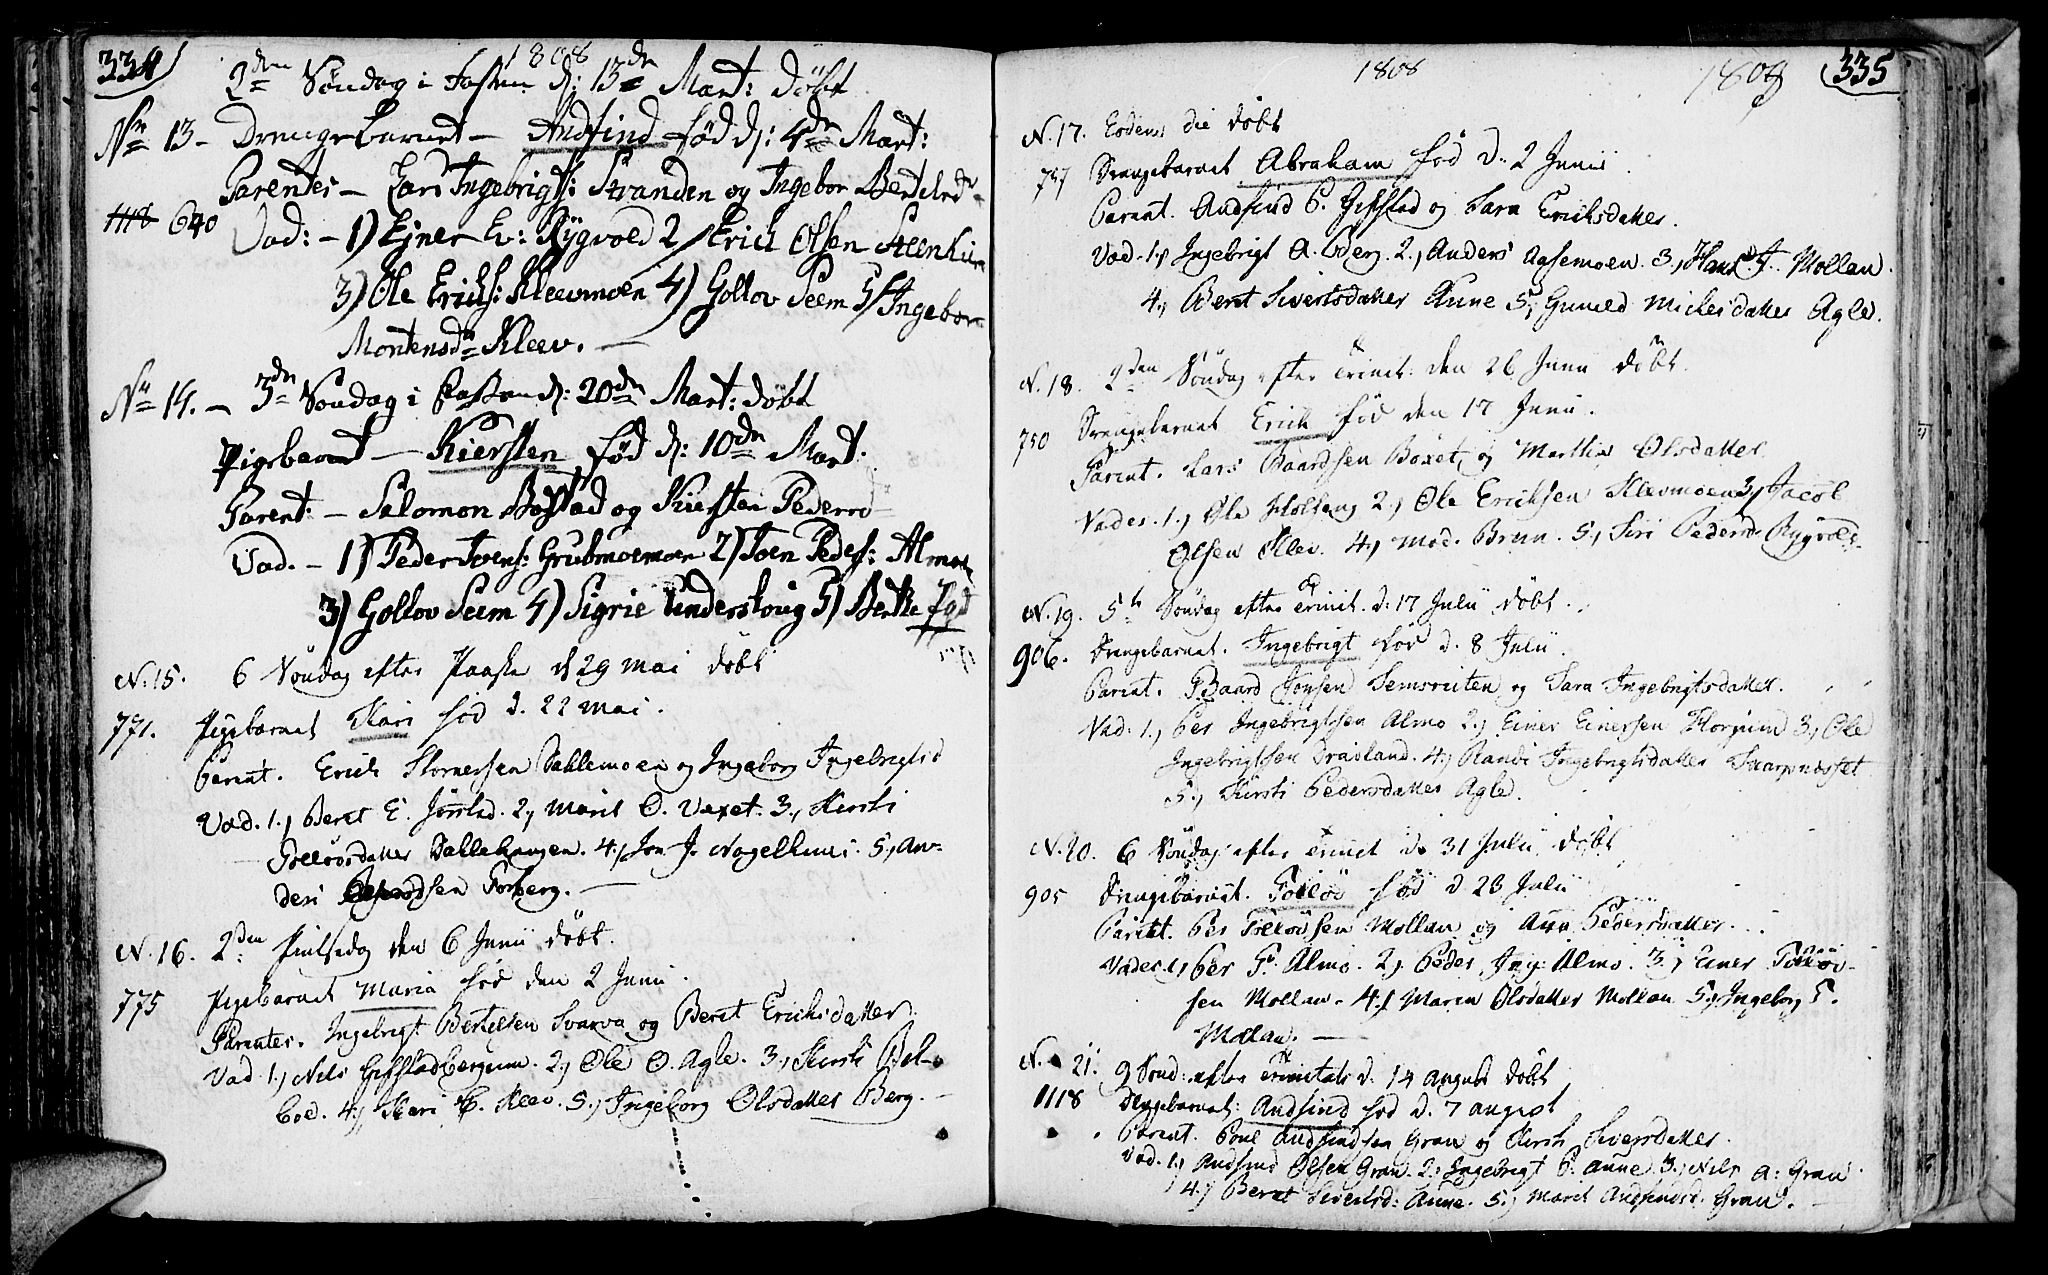 334)
1808
2den Søndag i Fasten d: 13de Mart: döbt
No 13 - Drengebarnet - Andfind fød d: 4de Mart:
Parentes - Lars Ingebrigts: Stranden og Ingebor Bertelsd
1118 640
Vad: - 1) Ejner E: Rygvold 2) Erich Olsen Steenkier
3) Ole Erichs: Kleevmoen 4) Gollov Seem 5) Ingebor
Mortensdr Kleev. -
No 14. - 3de Søndag i Fasten d: 20de Mart: döbt
Pigebarnet - Kiersten fød d: 10de Mart.
Parent: - Salomon Bostad og Kiersten Peders
Vad. - 1) Peder Ivers: Grubmoemoen 2) Joen Peders: Almoe
3) Gollov Seem 4) Sigrie Understoug 5) Berthe
N. 15. 6 Söndag efter Paaske d 29 mai döbt
771. Pigebarnet Kari föd d. 22 mai.
Parent. Erich Stornessen Dahlemoen og Ingeborg Ingebrigtsd
Vad. 1., Beret E. Jörstad. 2., Marit O. Vaxet. 3., Kirsti
Tollövsdatter Dallehaugen. 4., Jon J. Nagelhuus. 5., An-
ders sen Forberg. -
N. 16. 2den Pintsedag den 6 Junii döbt.
775 Pigebarnet Maria föd den 2 Junii.
Parentes. Ingebrigt Bertelsen Svarva og Beret Erichsdatter
Vad. 1., Nels Gifstadbergum. 2., Ole O. Agle. 3., Kirsti Bel-
boe. 4., Kari P. Kleev. 5., Ingeborg Olsdatter Berg. -
1808
1808
(335
N. 17. Eodem die döbt
757 Drengebarnet Abraham föd d. 2 Junii.
Parent. Andfind P. Gifstad og Sara Erichsdatter.
Vad. 1., Ingebrigt A. Berg. 2., Anders Aasemoen. 3., Hans J. Mollan.
4., Beret Sivertsdatter Aune 5., Gunild Mickelsdatter Agle.
N. 18. 2den Söndag efter Trinit: den 26 Junii döbt.
750 Drengebarnet Erich föd den 17 Junii.
Parent. Lars Baardsen Boxet, og Marthe Olsdatter.
Vades. 1., Ole Holbeng 2., Ole Ericksen Kleevmoen 3., Jacob
Olsen Klev. 4., Mad. Brun. 5., Siri Pedersd. Rygvold.
N. 19. 5te Söndag efter Trinit. d. 17 Julii döbt.
906. Drengebarnet. Ingebrigt föd d. 8 Julii.
Parent. Baard Jonsen Semsruten og Sara Ingebrigtsdatter.
Vad. 1., Per Ingebrigtsen Almo 2., Einer Einersen Florgium 3., Ole
Ingebrigtsen Travland. 4., Randi Ingebrigtsdatter Saarpnesset
5., Kirsti Pedersdatter Agle.
N. 20. 6 Söndag efter Trinit d. 31 Julii döbt
905 Drengebarnet. Tollöv föd d 23 Julii
Parent. Per Tollövsen Mollan og Ann Pedersdatter.
Vades. 1., Per F. Almo. 2., Peder Ing: Almo. 3., Einer Tollöv-
sen Mollan. 4., Maren Olsdatter Mollan 5., Ingeborg T.
Mollan. -
N. 21. 9 Sönd: efter Trinitatis d. 14 August döbt
1118 Drengebarnet: Andfind föd d. 7 august
Parent. Poul Andfindsen Gran og Kirsti Siversdatter.
Vad. 1., Andfind Olsen Gran. 2., Ingebrigt P. Aune. 3., Nils A: Gran
4., Beret Sivertsd: Aune. 5., Marit Andfindsd. Gran. -